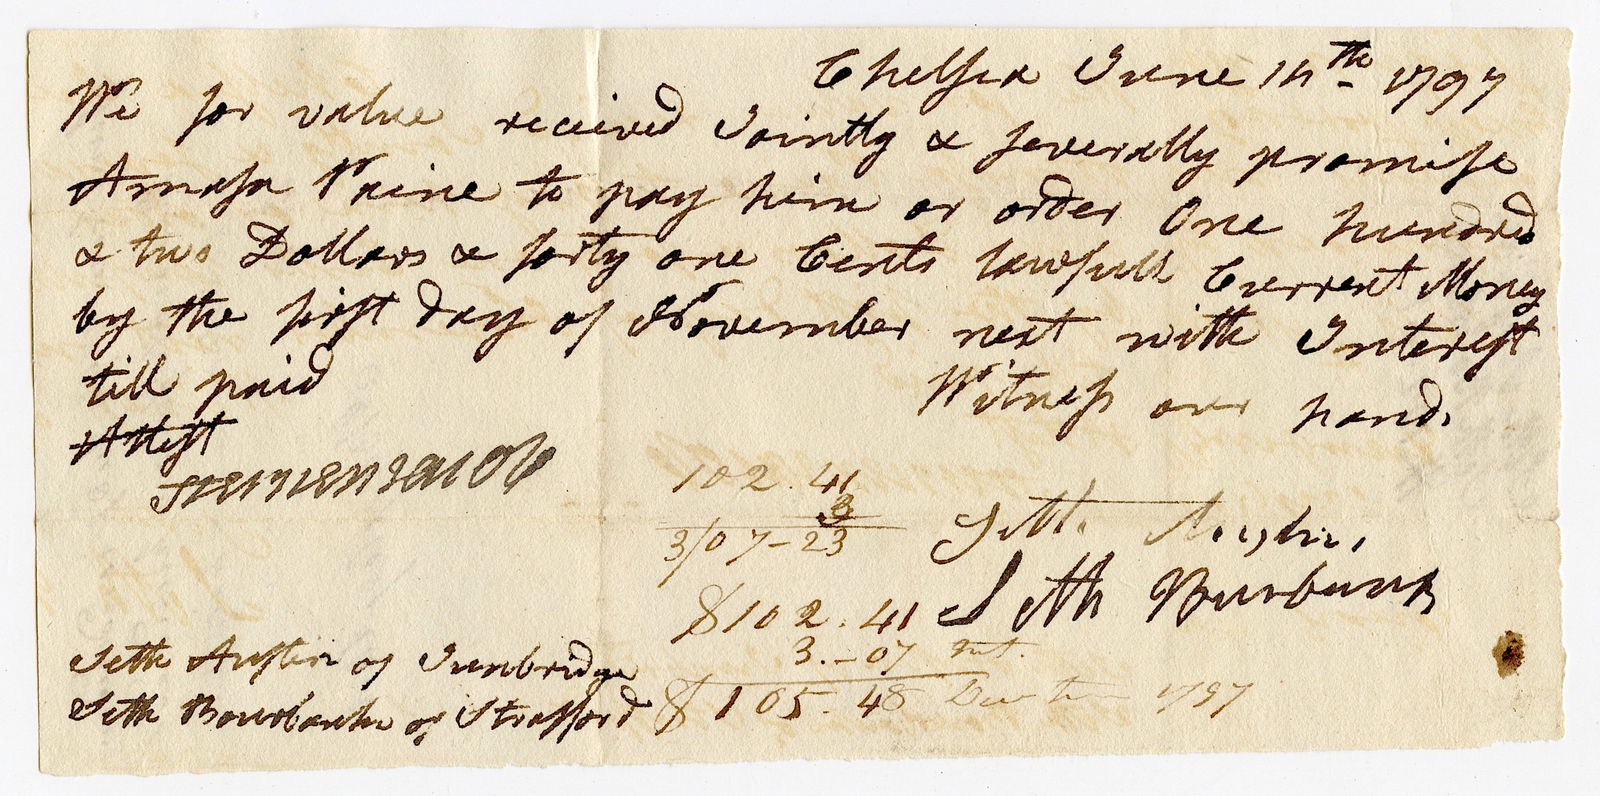 Chelsea June 14th 1797
We for value received Jointly & severally promise
Amasa Paine to pay him or order One hundred
& two Dollars & forty one Cents lawfull Current Money
by the first day of November next with Interest
till paid
Witness our hands
Attest
102.41
3
3/07-23
Seth Austin
$102.41
Seth Burbank
3.-07 Int.
Seth Austin of Tunbridge
$105.48 Due 1797
Seth Bourbank of Strafford